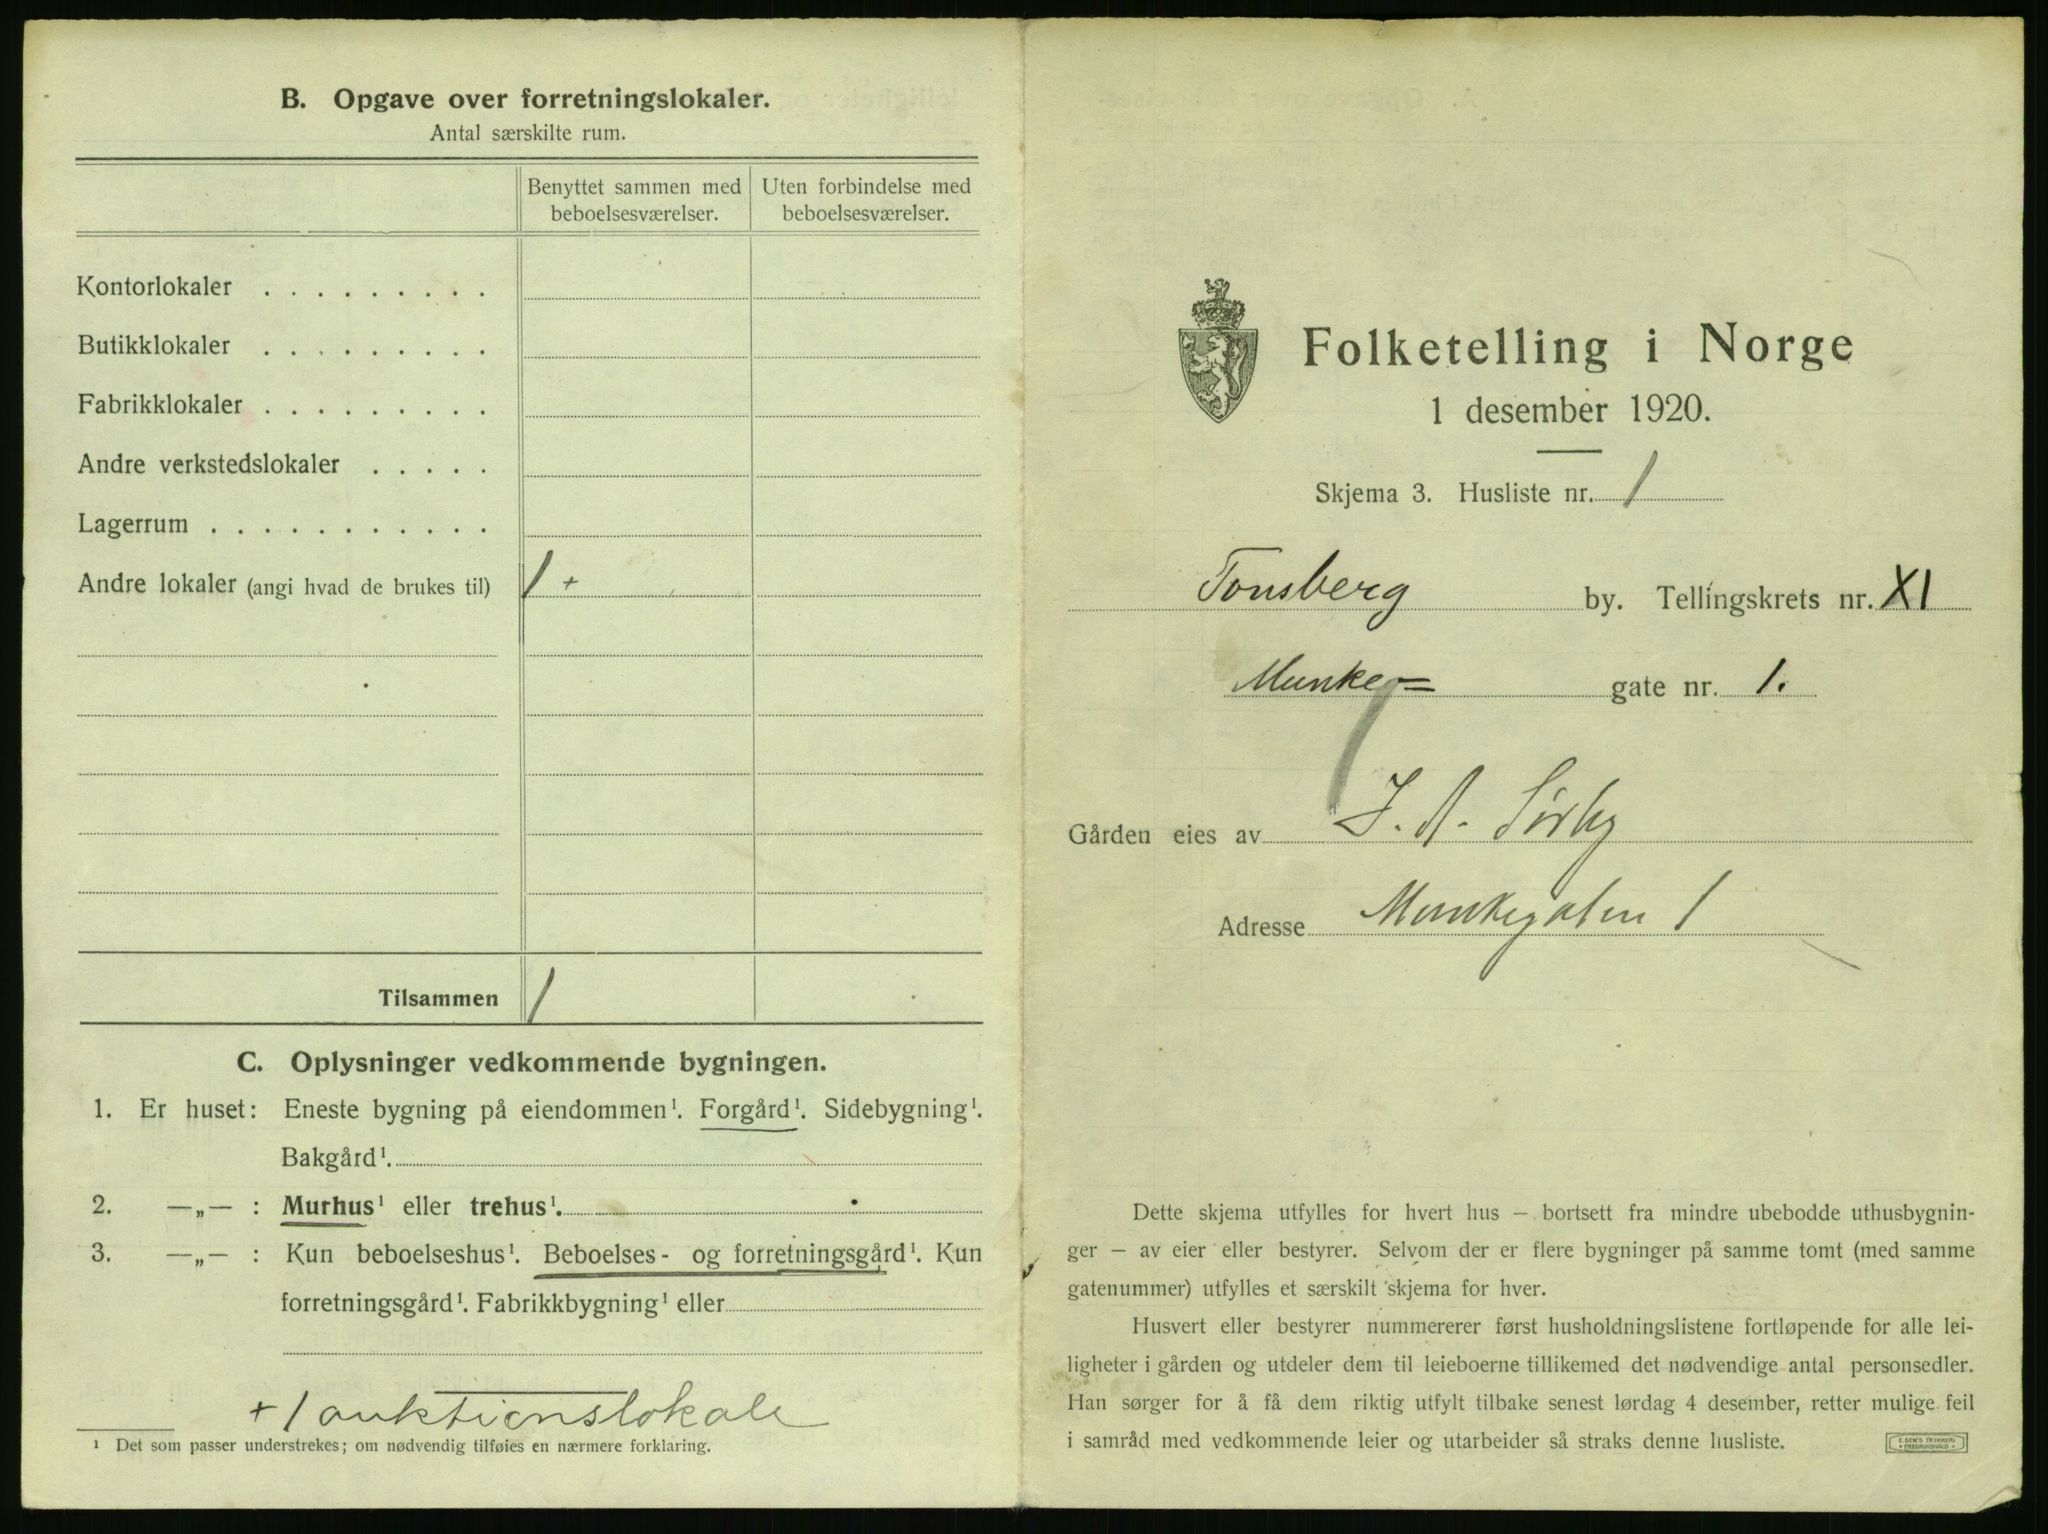 B. Opgave over forretningslokaler.
Antal særskilte rum.
Benyttet sammen med beboelsesværelser.
Uten forbindelse med beboelsesværelser.
Kontorlokaler . . . . . . . . .
Butikklokaler . . . . . . . . .
Fabrikklokaler . . . . . . . . .
Andre verkstedslokaler . . . . .
Lagerrum . . . . . . . . . . .
Andre lokaler (angi hvad de brukes til) 1 +
Tilsammen 1
C. Oplysninger vedkommende bygningen.
1. Er huset: Eneste bygning på eiendommen¹. Forgård¹. Sidebygning¹.
Bakgård¹.
2. —„— : Murhus¹ eller trehus¹.
3. —„— : Kun beboelseshus¹. Beboelses- og forretningsgård¹. Kun
forretningsgård¹. Fabrikkbygning¹ eller
+ 1 auktionslokale
¹ Det som passer understrekes; om nødvendig tilføies en nærmere forklaring.
Folketelling i Norge
1 desember 1920.
Skjema 3. Husliste nr. 1
Tønsberg by. Tellingskrets nr. XI
Munke= gate nr. 1.
Gården eies av J. A. Sörby
Adresse Munkegaten 1
Dette skjema utfylles for hvert hus — bortsett fra mindre ubebodde uthusbygnin-
ger — av eier eller bestyrer. Selvom der er flere bygninger på samme tomt (med samme
gatenummer) utfylles et særskilt skjema for hver.
Husvert eller bestyrer nummererer først husholdningslistene fortløpende for alle lei-
ligheter i gården og utdeler dem til leieboerne tillikemed det nødvendige antal personsedler.
Han sørger for å få dem riktig utfylt tilbake senest lørdag 4 desember, retter mulige feil
i samråd med vedkommende leier og utarbeider så straks denne husliste.
E. SEM'S TRYKKERI
FREDRIKSHALD